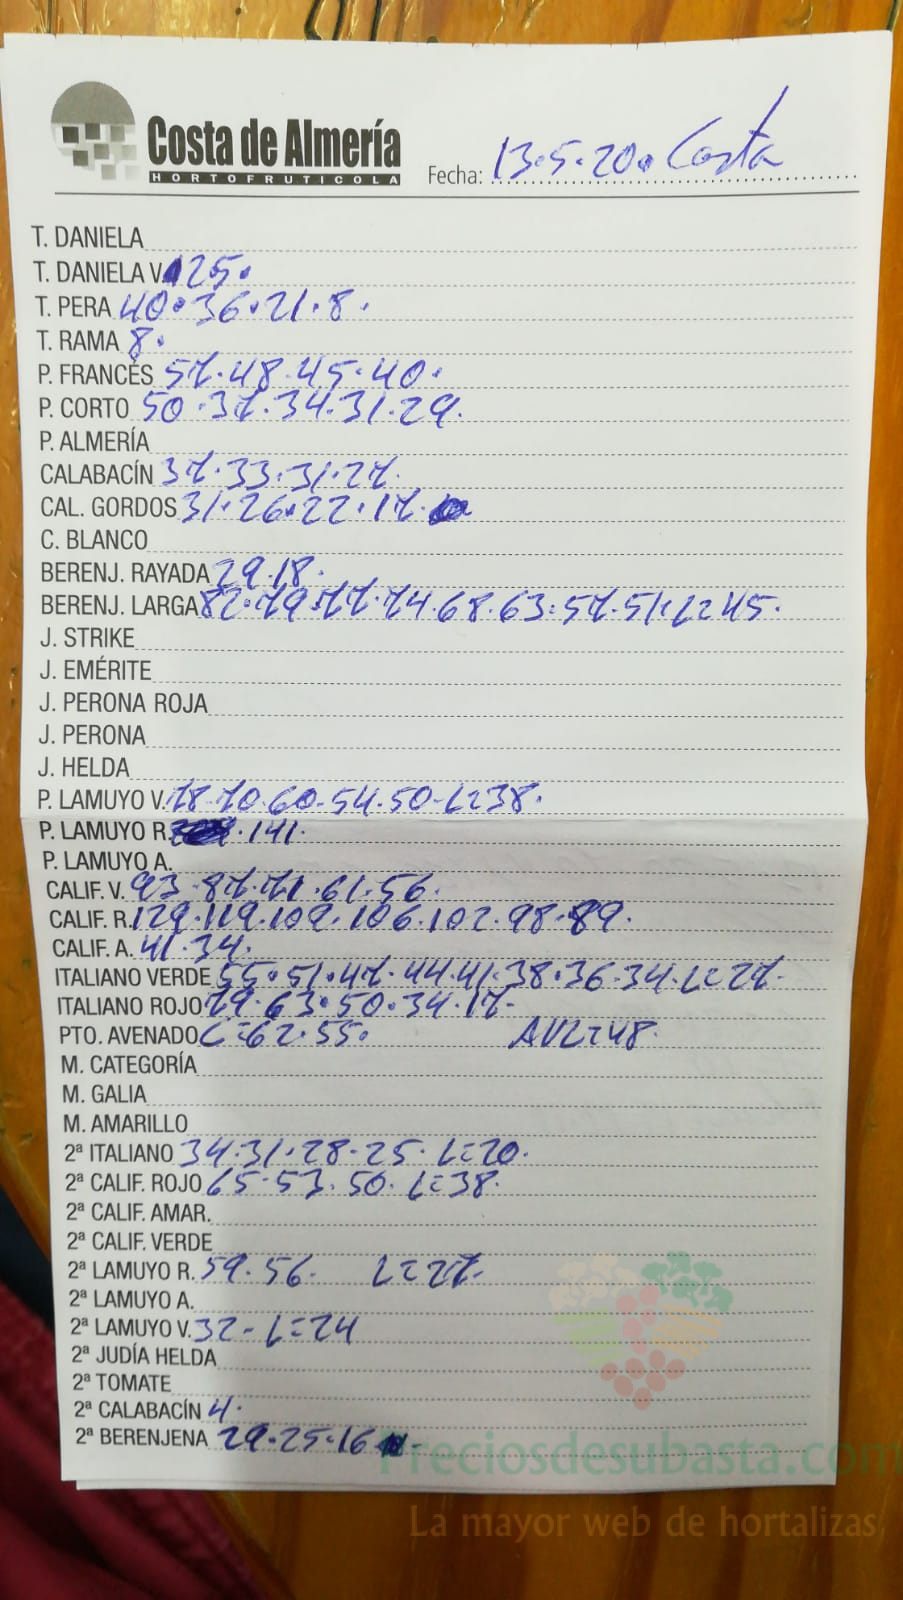 Costa de Almería
HORTOFRUTICOLA
Fecha: 13.5.20. Costa
T. DANIELA
T. DANIELA V. 25.
T. PERA 40.36.21.8.
T. RAMA 8.
P. FRANCÉS 57.48.45.40.
P. CORTO 50.37.34.31.29.
P. ALMERÍA
CALABACÍN 37.33.31.27.
CAL. GORDOS 31.26.22.17.
C. BLANCO
BERENJ. RAYADA 29.18.
BERENJ. LARGA 82.79.77.74.68.63.57.51.L=45.
J. STRIKE
J. EMÉRITE
J. PERONA ROJA
J. PERONA
J. HELDA
P. LAMUYO V. 78-70.60-54.50-L=38.
P. LAMUYO R. .141.
P. LAMUYO A.
CALIF. V. 93.87.71.61.56.
CALIF. R. 129.119.109.106.102.98.89.
CALIF. A. 41.34.
ITALIANO VERDE 55.51.47.44.41.38.36.34.L=27-
ITALIANO ROJO 79.63.50.34.17-
PTO. AVENADO C=62.55. AVL=48.
M. CATEGORÍA
M. GALIA
M. AMARILLO
2ª ITALIANO 34.31.28-25.L=20.
2ª CALIF. ROJO 65.53.50.L=38.
2ª CALIF. AMAR.
2ª CALIF. VERDE
2ª LAMUYO R. 59.56. L=27-
2ª LAMUYO A.
2ª LAMUYO V. 32-L=24
2ª JUDÍA HELDA
2ª TOMATE
2ª CALABACÍN 4.
2ª BERENJENA 29.25.16
Preciosdesubasta.com
La mayor web de hortalizas